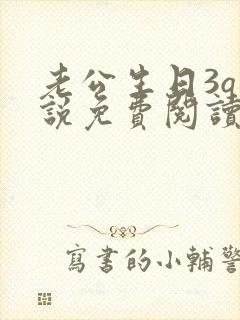 老公生日3g
說免費閱讀
寫書的小輔警